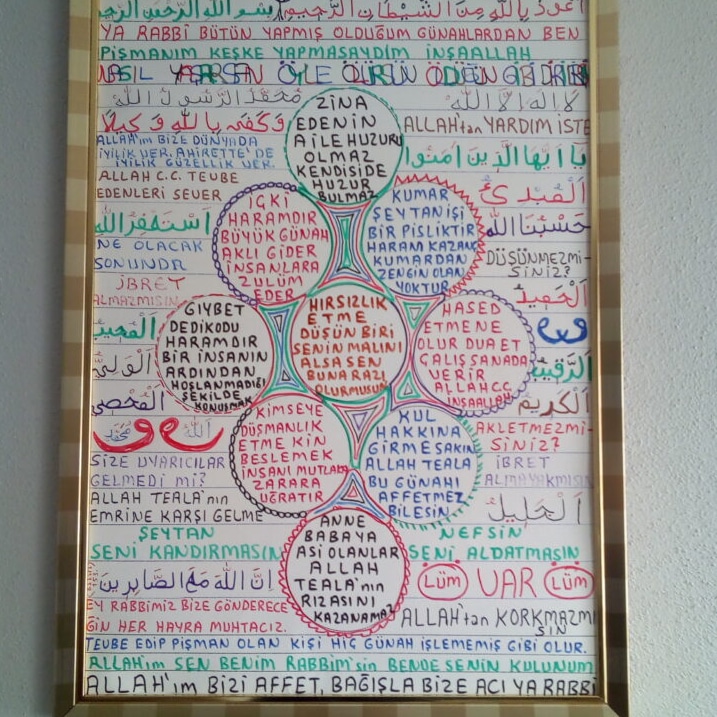 اعوذ بالله من الشيطان الرجيم بسم الله الرحمن الرحيم
YA RABBİ BÜTÜN YAPMIŞ OLDUĞUM GÜNAHLARDAN BEN
PİŞMANIM KEŞKE YAPMASAYDIM İNŞAALLAH
NASIL YAŞARSAN ÖYLE ÖLÜRSÜN
محمد الرسول الله
لا اله الا الله
وكفى بالله وكيلا
ALLAH'tan YARDIM İSTE
ALLAH'ım BİZE DÜNYADA
İYİLİK VER. AHİRETTE'DE
İYİLİK GÜZELLİK VER.
يا ايها الذين امنوا
ALLAH C.C. TEUBE
EDENLERİ SEVER
استغفر الله
حسبنا الله
NE OLACAK
SONUNDA
DÜŞÜNMEZMİ-
SİNİZ?
İBRET
ALMAZMISIN
ZİNA
EDENİN
AİLE HUZURU
OLMAZ
KENDİSİDE
HUZUR
BULMAZ
İÇKİ
HARAMDIR
BÜYÜK GÜNAH
AKLI GİDER
İNSANLARA
ZULÜM
EDER
KUMAR
ŞEYTAN İŞİ
BİR PİSLİKTİR
HARAM KAZANÇ
KUMARDAN
ZENGİN OLAN
YOKTUR
GIYBET
DEDİKODU
HARAMDIR
BİR İNSANIN
ARDINDAN
HOŞLANMADIĞI
ŞEKİLDE
KONUŞMAK
HIRSIZLIK
ETME
DÜŞÜN BİRİ
SENİN MALINI
ALSA SEN
BUNA RAZI
OLURMUSUN
HASED
ETMENE
OLUR DUA ET
ÇALIŞ SANADA
VERİR
ALLAH CC.
İNŞAALLAH
الرقيب
الكريم
الولي
KİMSEYE
DÜŞMANLIK
ETME KİN
BESLEMEK
İNSANI MUTLAKA
ZARARA
UĞRATIR
KUL
HAKKINA
GİRME SAKIN
ALLAH TEALA
BU GÜNAHI
AFFETMEZ
BİLESİN
AKLETMEZMİ-
SİNİZ?
الله
محمد
SİZE UYARICILAR
GELMEDİ Mİ?
İBRET
ALMAYAKMISIN
ALLAH TEALA'nın
EMRİNE KARŞI GELME
الجليل
ŞEYTAN
SENİ KANDIRMASIN
NEFSİN
SENİ ALDATMASIN
ANNE
BABAYA
ASİ OLANLAR
ALLAH
TEALA'nın
RIZASINI
KAZANAMAZ
ان الله مع الصابرين
ÖLÜM VAR ÖLÜM
EY RABBİMİZ BİZE GÖNDERECE
ĞİN HER HAYRA MUHTACIZ.
ALLAH'tan KORKMAZMI
SIN
TEUBE EDİP PİŞMAN OLAN KİŞİ HİÇ GÜNAH İŞLEMEMİŞ GİBİ OLUR.
ALLAH'ım SEN BENİM RABBİM'sin BENDE SENİN KULUNUM
ALLAH'ım BİZİ AFFET, BAĞIŞLA BİZE ACI YA RABBİ